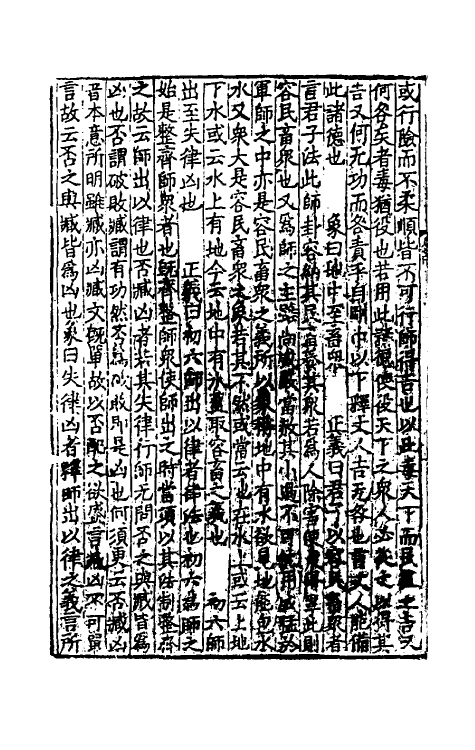 或行險而不柔順皆不可行師得吉也以此毒天下而民從之吉又
何咎矣者毒猶役也若用此諸德使役天下之衆人必從之以得其
吉又何无功而咎責乎自剛中以下釋丈人吉无咎也言丈人能備
此諸德也 象曰地中至畜衆 正義曰君子以容民畜衆者
言君子法此師卦容納其民畜養其衆若爲人除害使衆得寧此則
容民畜衆也又爲師之主雖尚威嚴當赦其小過不可純用威猛於
軍師之中亦是容民畜衆之義所以象稱地中有水欲見地能包水
水又衆大是容民畜衆之象若其不然或當云地在水上或云上地
下水或云水上有地今云地中有水蓋取容畜之義也 初六師
出至失律凶也 正義曰初六師出以律者律法也初六爲師之
始是整齊師衆者也既齊整師衆使師出之時當須以其法制整齊
之故云師出以律也否臧凶者若其失律行師无問否之與臧皆爲
凶也否謂破敗臧謂有功然否爲破敗即是凶也何須更云否臧凶
者本意所明雖臧亦凶臧文既單故以否配之欲盛言臧凶不可單
言故云否之與臧皆爲凶也象曰失律凶者釋師出以律之義言所